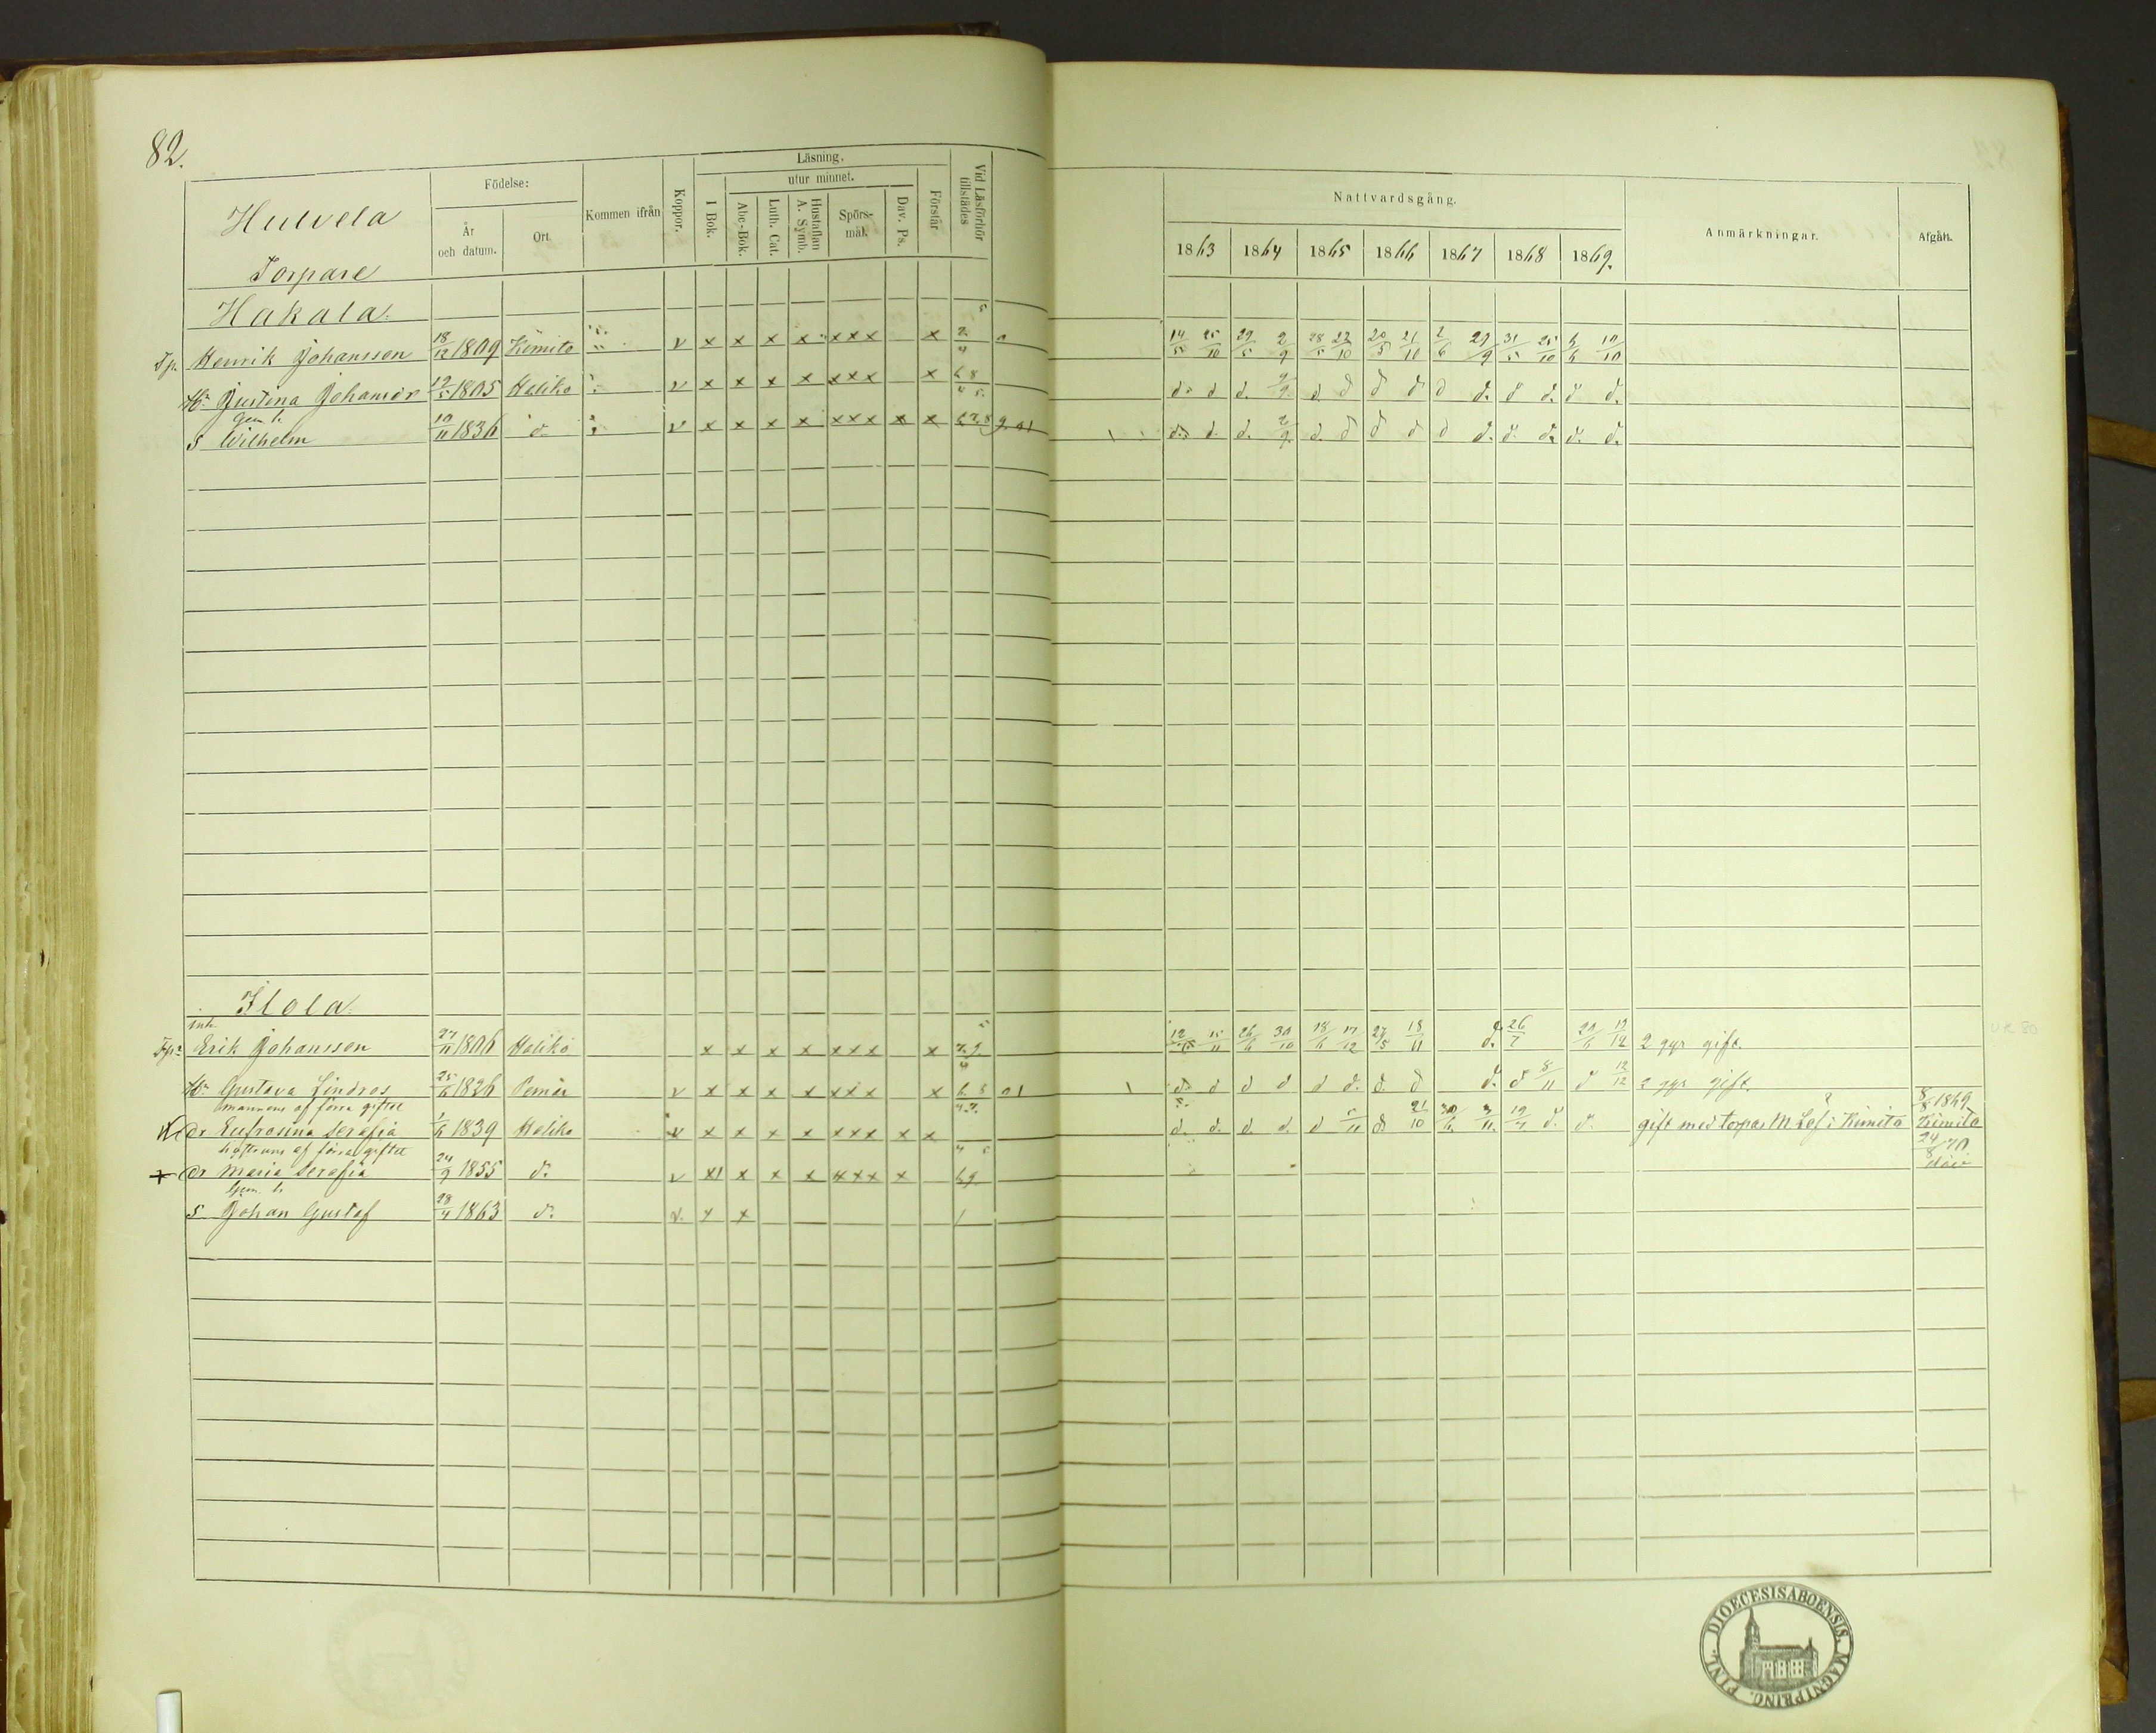 82.
Födelse:
Läsning.
utur minnet.
Hulvela
Torpare
År och datum.
Ort.
Kommen ifrån
Koppor.
I Bok.
Abc-Bok.
Luth. Cat.
Hustaflan A. Symb.
Spörsmål.
Dav. Ps.
Förstår
Vid Läsförhör tillstädes
Nattvardsgång.
1863 1864 1865 1866 1867 1868 1869.
Anmärkningar.
Afgått.
Hakala.
Tp. Henrik Johansson 18/12 1809 Kimito v x x x x xxx x 14/5 25/10 29/5 2/9 28/5 22/10 20/5 21/10 2/6 29/9 31/5 25/10 6/6 10/10
Hu Justina Johansdr 19/5 1805 Haliko v x x x x xxx x d. d d. d. d d d d d. d d. d d.
Gem. b.
S Wilhelm 10/11 1836 d. v x x x x xxx x x d. d. d. d. d d d d d. d. d. d. d.
Ilola.
inh.
Tpr Erik Johansson 27/11 1806 Haliko x x x x xxx x 26/6 30/10 18/6 17/12 27/5 18/11 d. 26/7 2 ggr gift.
Hu Gustava Lindros 25/6 1826 Pemar v x x x x xxx x d. d d d d d. d. d d. d 8/11 d 12/12 2 ggr gift.
mannens af förra giftet
dr Eufrosina Serafia 1/6 1839 Haliko v x x x x xxx x x d. d. d. d. d d. 21/10 30/6 19/7 d. d. gift med torpar M Lef i Kimito 8/8 1869 Kimito
hustruns af förra giftet
+ dr Maria Serafia 24/9 1855 d. v x x x x xxx x 24/8 70
Gem. b.
S Johan Gustaf 28/4 1863 d. v. x x
FINL. DIOECESIS ABOENSIS. MAGNI PRINC.